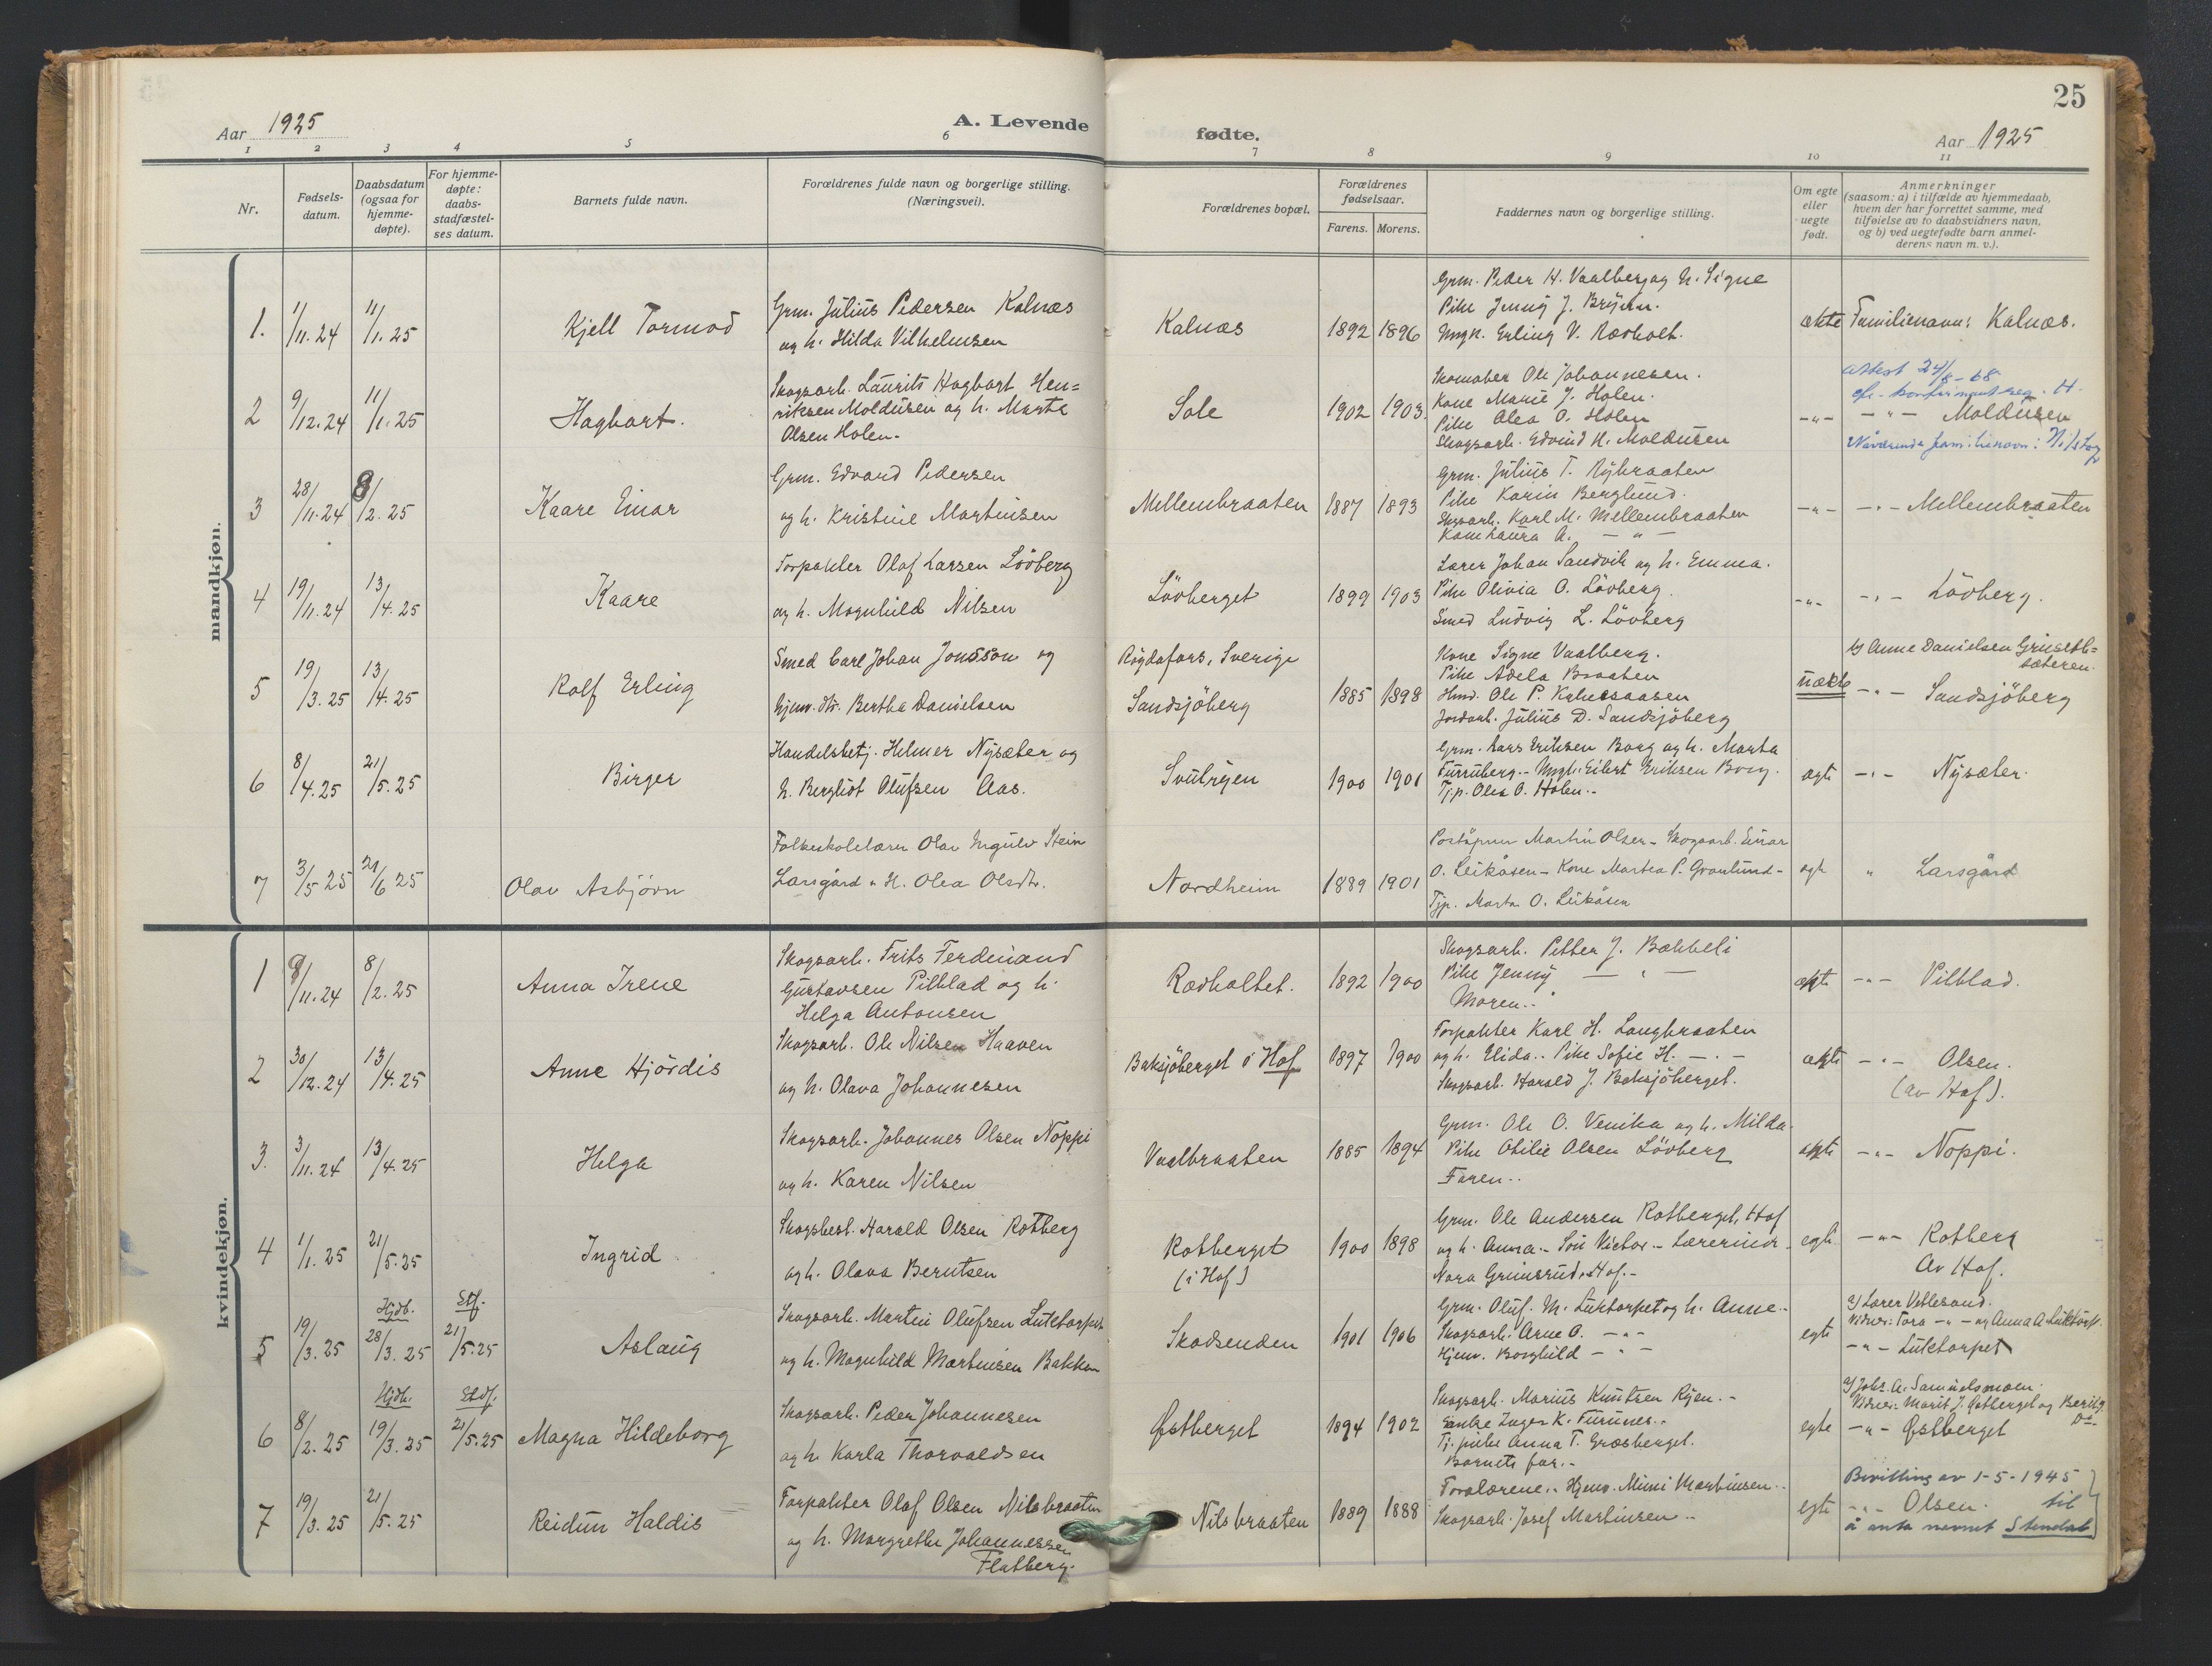 25
Aar 1925
A. Levende
fødte.
Aar 1925
1 2 3 4 5 6 7 8 9 10 11
Nr.
Fødsels-
datum.
Daabsdatum
(ogsaa for
hjemme-
døpte).
For hjemme-
døpte:
daabs-
stadfæstel-
ses datum.
Barnets fulde navn.
Forældrenes fulde navn og borgerlige stilling.
(Næringsvei).
Forældrenes bopæl.
Forældrenes
fødselsaar.
Farens. Morens.
Faddernes navn og borgerlige stilling.
Om egte
eller
uegte
født.
Anmerkninger
(saasom: a) i tilfælde av hjemmedaab,
hvem der har forrettet samme, med
tilføielse av to daabsvidners navn,
og b) ved uegtefødte barn anmel-
derens navn m. v.).
mandkjøn.
1. 1/11.24 11/1.25 Kjell Tormod
Grm. Julius Pedersen Kalnæs
og h. Hilda Vilhelmsen
Kalnæs 1892 1896
Grm. Peder H. Vaalberg og h. Signe
Pike Jenny J.
Ungk. Erling V. Rødholt.
ækte Familienavn: Kalnæs.
2 9/12.24 11/1.25 Hagbart.
Skogsarb. Laurits Hagbart Hen=
riksen Moldusen og h. Marte
Olsen Holen.
Sole 1902 1903.
Skomaker Ole Johannesen.
Kone Marie J. Holen.
Pike Olea O. Holen
Skogsarb. Edvind H. Moldusen
-"-
Attest 24/8-68
-"- Moldusen
Nåværende familienavn:
3 28/11.24 8/2.25 Kaare Einar
Grm. Edvard Pedersen
og h. Kristine Martinsen
Mellembraaten 1887 1893
Grm. Julius T. Nybraaten
Pike Karin Berglund.
Skogsarb. Karl M. Mellembraaten
Kone Laura A. -"-
-"- -"- Mellembraaten
4 19/11.24 13/4.25 Kaare
Forpakter Olaf Larsen Lövberg
og h. Magnhild Nilsen
Lövberget 1899 1903
Lærer Johan Sandvik og h. Emma.
Pike Olivia O. Lövberg.
Smed Ludvig L. Lövberg
-"- -"- Lövberg.
5 19/3.25 13/4.25 Rolf Erling
Smed Carl Johan Jonsson og
hjemv. dtr. Bertha Danielsen
Røgdafors, Sverige
Sandsjöberg 1885 1898
Kone Signe Vaalberg.
Pike Adela Braaten
Hmd. Ole P. Kalnesaasen
Jordarb. Julius D. Sandsjöberg
uækte
v/ Anne Danielsen Grusetb=
sæteren.
-"- Sandsjöberg
6 8/4.25 21/5.25 Birger
Handelsbetj. Helmer Nysæter og
h. Bergliot Olufsen Aas.
Svulryen 1900 1901
Grm. Lars Eriksen Borg og h. Marta
Furruberg.- Ungk. Eilert Eriksen Borg.
Tj.p. Olea O. Holen.-
egte -"- Nysæter.
7 3/5 25 21/6 25 Olav Asbjørn
Folkeskolelærer Olav Ingulv Stein
Larsgård & H. Olea Olsdtr.
Nordheim 1889 1901
Poståpner Martin Olsen - Skogsarb. Einar
O. Leikåsen - Kone Martea P. Granlund -
Tjp. Marta O. Leikåsen
egte " Larsgård
kvindekjøn.
1 9/11.24 8/2.25 Anna Irene
Skogsarb. Frits Ferdinand
Gustavsen Pilblad og h.
Helga Antonsen
Rødholtet. 1892 1900
Skogsarb. Petter J. Bakkeli
Pike Jenny -"-
Moren.-
ekte -"- Pilblad.
2 30/12.24 13/4.25 Anne Hjördis
Skogsarb. Ole Nilsen Haaven
og h. Olava Johannesen
Baksjöberget i Hof 1897 1900
Forpakter Karl H. Langbraaten
og h. Elida.. Pike Sofie H. -"-
Skogsarb. Harald J. Baksjöberget.
ækte -"- Olsen.
(av Hof).
3. 3/11.24 13/4.25 Helga
Skogsarb. Johannes Olsen Noppi
og h. Karen Nilsen
Vaalbraaten 1885 1894
Grm. Ole O. Venika og h. Milda.
Pike Otilie Olsen Lövberg
Faren..
ekte -"- Noppi.
4 1/1.25 21/5.25 Ingrid
Skogsbest. Harald Olsen Rotberg
og h. Olava Berntsen
Rotberget
(i Hof) 1900 1898
Grm. Ole Andersen Rotberget, Hof
og h. Anna.- Sön Victor.- Lærerinde
Nora Grinsrud, Hof.-
egte -"- Rotberg
Av Hof.
5 19/3.25 Hjdb. 28/3.25 Stf. 21/5.25 Aslaug
Skogsarb. Martin Olufsen Luktorpet
og h. Magnhild Martinsen Bakken
Skodsenden 1901 1906
Grm. Oluf. M. Luktorpet og h. Anne.-
Skogsarb. Arne O. -"-
Hjemv. Borghild -"-
egte
v/ Lærer Vetlesand.
Vidner: Tora -"- og Anna A. Luktorp.
-"- Luktorpet
6 8/2.25 Hjdb. 19/3.25 Stdf. 21/5.25 Magna Hildeborg
Skogsarb. Peder Johannesen
og h. Karla Thorvaldsen
Østberget 1894 1902
Skogsarb. Marius Knutsen Ryen.-
Enke Inger K. Furunes..
Tj. pike Anna T. Græsberget.
Barnets far.-
egte
v/ Johs. A. Samuelsmoen.
Vidner: Marit J. Østberget og Berit
-"- Østberget
7 19/3.25 21/5.25 Reidun Haldis
Forpakter Olaf Olsen Nilsbraaten
og h. Margrethe Johannessen
Flatberg.
Nilsbraaten 1889 1888
Forældrene.. Hjemv. Mimi Martinsen..
Skogsarb. Josef Martinsen..
egte
Bevilling av 1-5-1945
-"- Olsen. til
å anta navnet Stendal